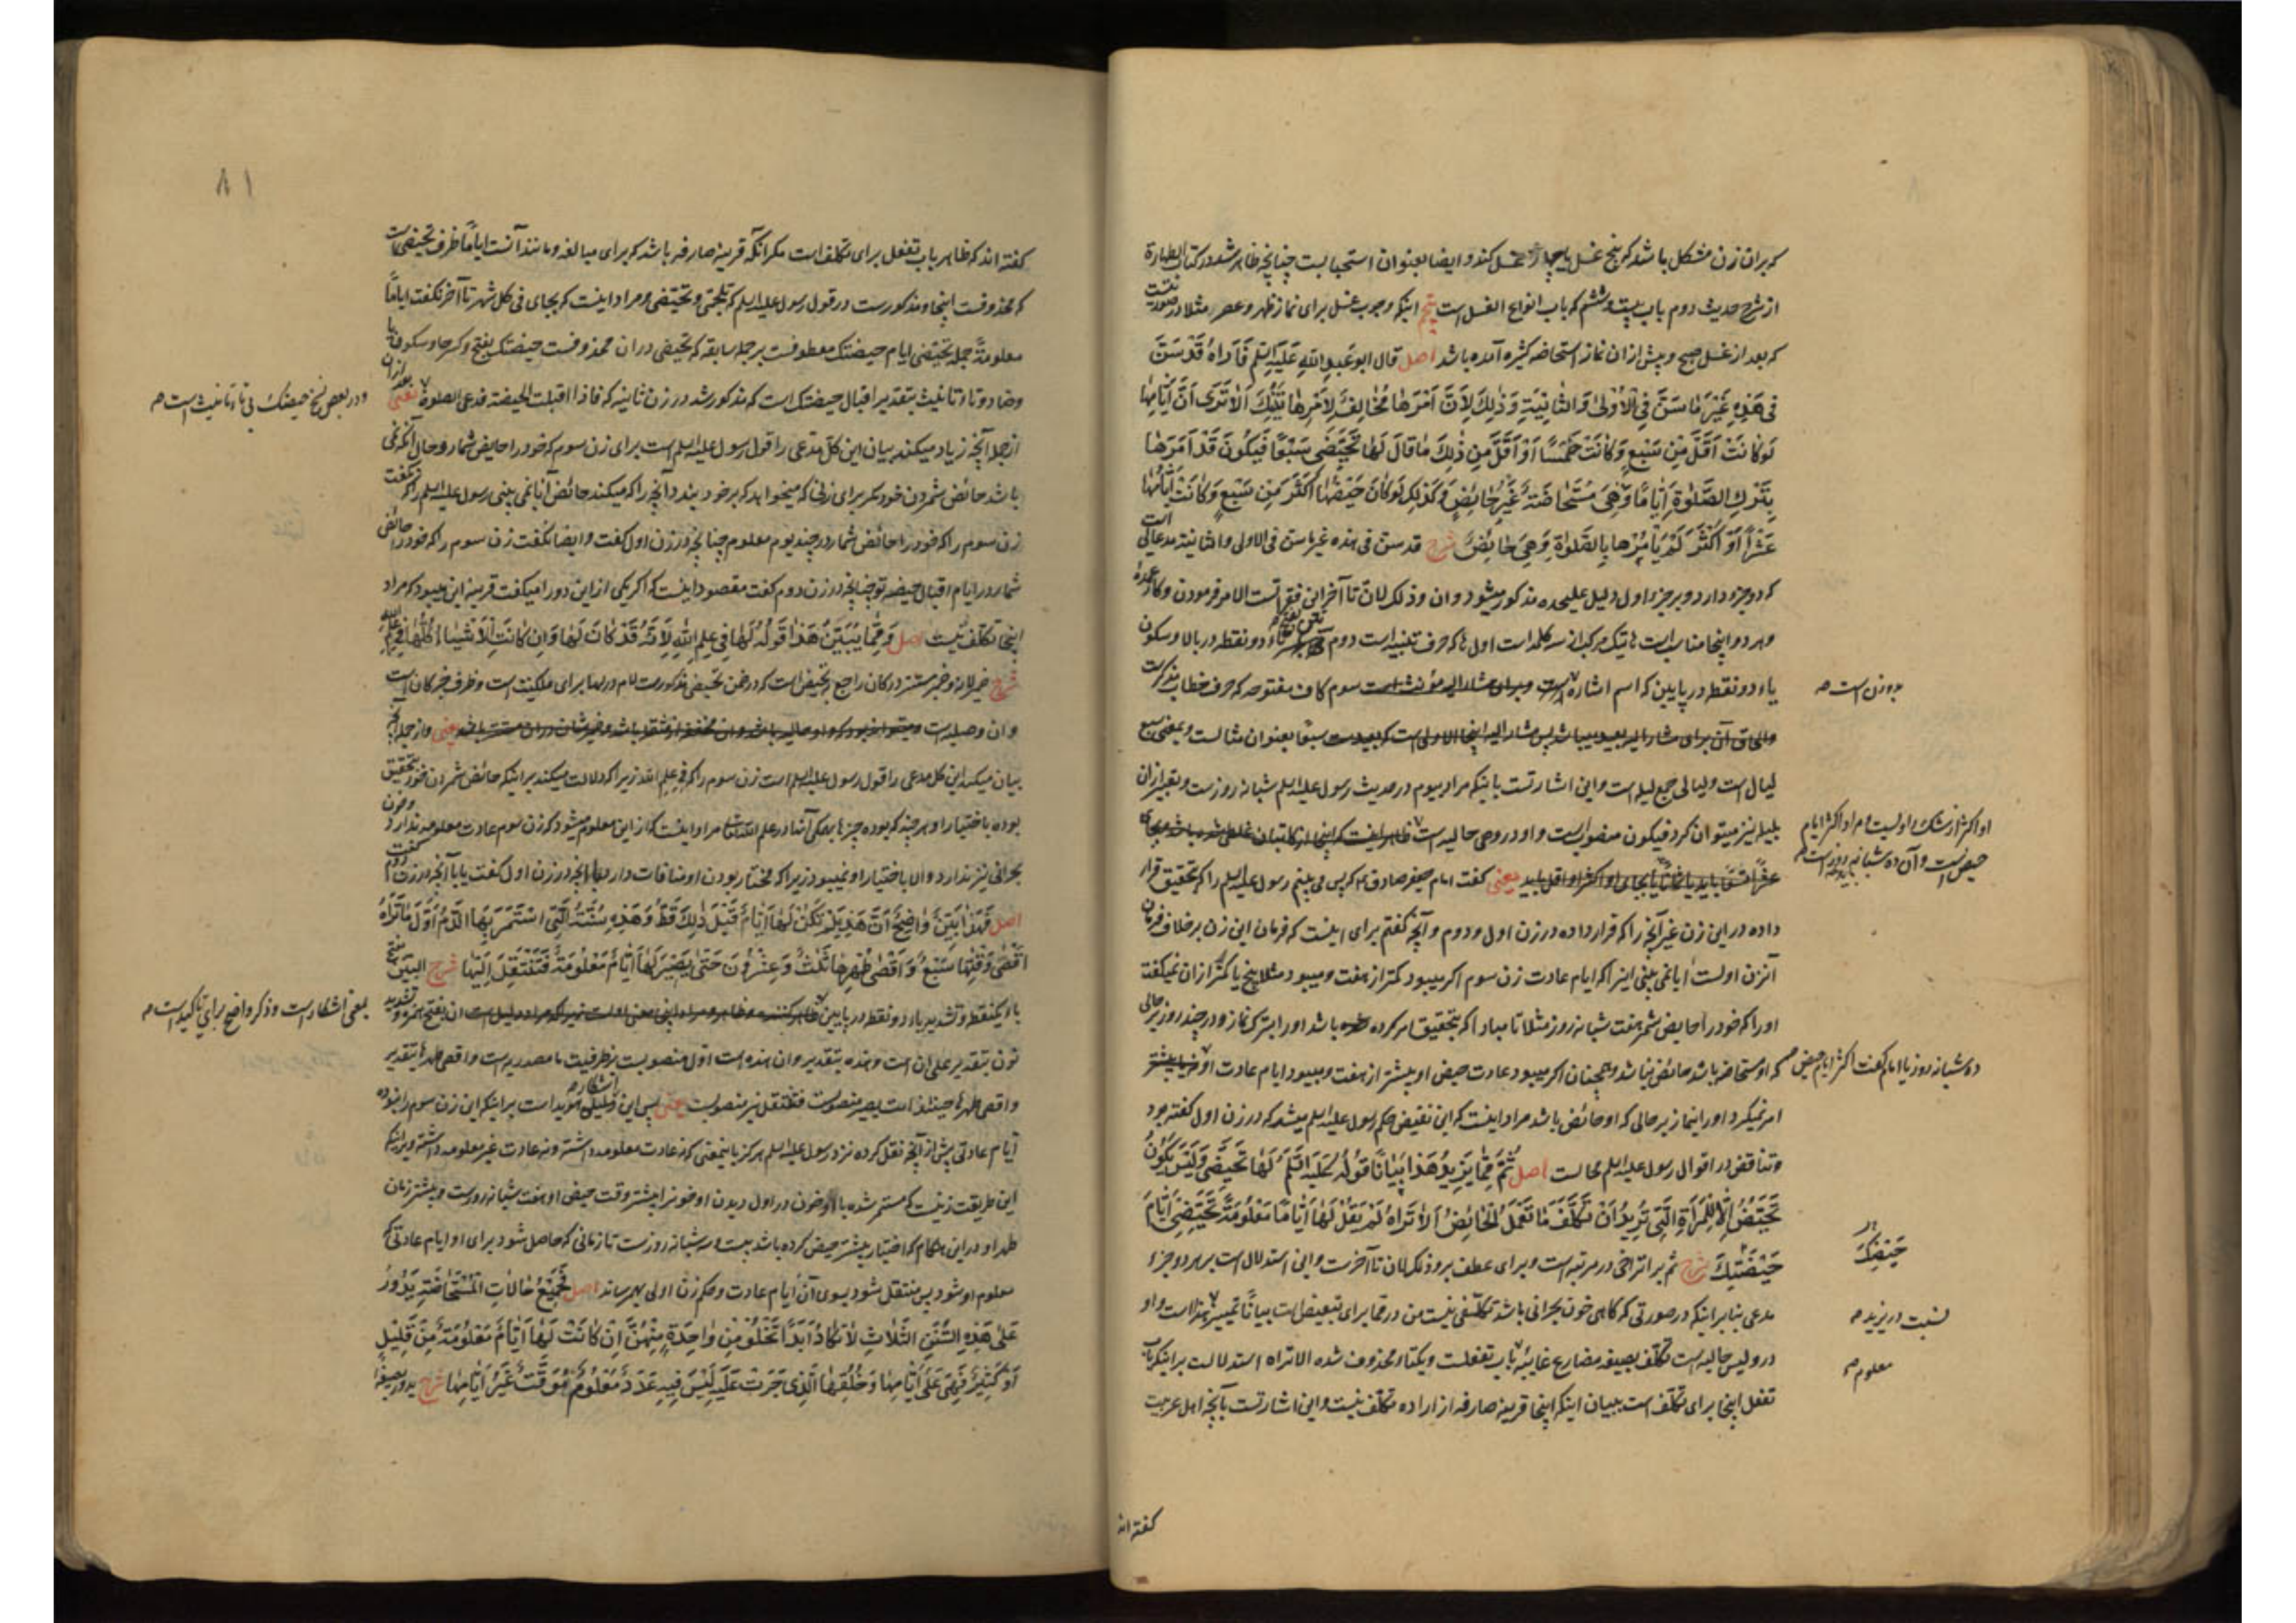 که بران زن مشکل باشد که پنج غسل یا چهار غسل کند و ایضا بعنوان استحبابست چنانچه ظاهر شد در کتاب الطهارة
از شرح حدیث دوم باب بیست و ششم که باب انواع الغسل است پنجم اینکه وجوب غسل برای نماز ظهر و عصر مثلا در صورتیست
که بعد از غسل صبح و پیش ازان نماز استحاضه کثیره آمده باشد اصل قال ابو عبد الله علیه السلم فَأَرَاهُ قَدْ سَنَّ
فِي هَذِهِ غَيْرَ مَا سَنَّ فِي الْأُولَى وَالثَّانِيَةِ وَذَلِكَ لِأَنَّ أَمْرَهَا مُخَالِفٌ لِأَمْرِهَا تَيْنِكَ أَلَا تَرَى أَنَّ أَيَّامَهَا
لَوْ كَانَتْ أَقَلَّ مِنْ سَبْعٍ وَكَانَتْ خَمْسًا أَوْ أَقَلَّ مِنْ ذَلِكَ مَا قَالَ لَهَا تَحَيَّضِي سَبْعًا فَيَكُونُ قَدْ أَمَرَهَا
بِتَرْكِ الصَّلَوةِ أَيَّامًا وَهِيَ مُسْتَحَاضَةٌ غَيْرُ حَائِضٍ وَكَذَلِكَ لَوْ كَانَ حَيْضُهَا أَكْثَرَ مِنْ سَبْعٍ وَكَانَتْ أَيَّامُهَا
عَشْرًا أَوْ أَكْثَرَ لَمْ يَأْمُرْهَا بِالصَّلَوةِ وَهِيَ حَائِضٌ شرح قد سن فی هذه غیر ما سن فی الاولی و الثانیة مدعائی است
که دو جزء دارد و بر جزء اول دلیل علیحده مذکور میشود و ان و ذلک لان تا آخر این فقراتست الامر فرمودن و کار عمده
و هر دو اینجا مناسبست تیک مرکب از سه کلمه است اول ها که حرف تنبیه است دوم دو نقطه در بالا و سکون
یاء دو نقطه در پایین که اسم اشاره است و برای مشار الیه مؤنث است سوم کاف مفتوحه که حرف خطاب
و الحاق آن برای مشار الیه بعید میباشد پس مشار الیه اینجا الاولی است که بعیدست سبعا بعنوان مثالست و بمعنی سبع
لیال است و لیالی جمع لیله است و این اشارتست باینکه مراد بیوم در حدیث رسول علیه السلم شبانه روزست و تعبیر ازان
بلیله نیز میتوان کرد فیکون منصوبست و او در وهی حالیه است
یعنی گفت امام جعفر صادق ع که پس می بینم رسول علیه السلم را که بتحقیق قرار
داده در این زن غیر آنچه را که قرار داده در زن اول و دوم و آنچه گفتم برای اینست که فرمان این زن بر خلاف فرمان
آنزن اولست ایا نمی بینی اینرا که ایام عادت زن سوم اگر میبود کمتر از هفت و میبود مثلا پنج یا کمتر ازان نمیگفت
او را که خود را حایض شمر هفت شبانه روز مثلا تا مبادا که بتحقیق امر کرده باشد او را بترک نماز و در چند روز بر حالی
که او مستحاضه باشد حائض نباشد و همچنان اگر میبود عادت حیض او بیشتر از هفت و میبود ایام عادت او
امر نمیکرد او را بنماز بر حالی که او حائض باشد مراد اینست که این نقیض حکم رسول علیه السلم میشد که در زن اول گفته بود
و تناقض در اقوال رسول علیه السلم محالست اصل ثُمَّ مِمَّا يَزِيدُ هَذَا بَيَانًا قَوْلُهُ عَلَيْهِ السَّلَمُ لَهَا تَحَيَّضِي وَلَيْسَ يَكُونُ
تَحَيُّضٌ إِلَّا لِلْمَرْأَةِ الَّتِي تُرِيدُ أَنْ تَكَلَّفَ مَا تَعْمَلُ الْحَائِضُ أَلَا تَرَاهُ لَمْ يَقُلْ لَهَا أَيَّامًا مَعْلُومَةً تَحَيَّضِي أَيَّامَ
حَيْضَتِكِ شرح ثم برای تراخی در مرتبه است و برای عطف بر و ذلک لان تا آخرست و این استدلال است بر هر دو جزء
مدعی بنابر اینکه در صورتی که گاهی خون بحرانی باشد تکلفی نیست من در مما برای تبعیض است بیانا تمییز هذا است واو
در و لیس حالیه است تکلف بصیغه مضارع غایبه باب تفعلست و یک تاء محذوف شده الا تراه استدلالست بر اینکه باب
تفعل اینجا برای تکلف است ببیان اینکه اینجا قرینه صارفه از اراده تکلف نیست و این اشارتست بآنچه اهل عربیت
بر وزن است صح
او اکثر از شک راویست و مراد اکثر ایام
حیض است و آن ده شبانه روز است
ده شبانه روز یا امام گفت اکثر ایام حیض
حَيْضِكِ
نسبت در یزید صح
معلوم صح
گفته اند
۸۱
گفته اند که ظاهر باب تفعل برای تکلف است مگر آنکه قرینه صارفه باشد که برای مبالغه و مانند آنست ایاما ظرف تحیضی است
که محذوفست اینجا و مذکورست در قول رسول علیه السلم که تلجمی و تحیضی و مراد اینست که بجای فی کل شهر تا آخر نگفت ایاما
معلومة جمله تحیضی ایام حیضتک معطوفست بر جمله سابقه که تحیضی دران محذوفست حیضتک بفتح و کسر حا و سکون یا
و ضاد و تاء تانیث بتقدیر اقبال حیضتک است که مذکور شد در زن ثانیه که فاذا اقبلت الحیضة فدعی الصلوة یعنی بعد ازان
از جمله آنچه زیاد میکند بیان این کل مدعی را قول رسول علیه السلم است برای زن سوم که خود را حایض شمار و حال آنکه نمی
باشد حائض شمردن خود مگر برای زنی که میخواهد که بر خود بندد آنچه را که میکند حائض آیا نمی بینی رسول علیه السلم را که نگفت
زن سوم را که خود را حائض شمار در چند یوم معلوم چنانچه در زن اول گفت و ایضا نگفت زن سوم را که خود را حائض
شمار در ایام اقبال حیضه تو چنانچه در زن دوم گفت مقصود اینست که اگر یکی از این دو را میگفت قرینه این میبود که مراد
اینجا تکلف نیست اصل وَمِمَّا يُبَيِّنُ هَذَا قَوْلُهُ لَهَا فِي عِلْمِ اللهِ لِأَنَّهُ قَدْ كَانَ لَهَا وَإِنْ كَانَتِ الْأَشْيَاءُ كُلُّهَا فِي عِلْمِ اللهِ
شرح ضمیر لانه و ضمیر مستتر در کان راجع بتحیض است که در ضمن تحیضی مذکورست لام در لها برای ملکیت است و ظرف خبر کان است
و ان وصلیه است یعنی و از جمله آنچه
بیان میکند این کل مدعی را قول رسول علیه السلم است زن سوم را که فی علم الله زیرا که دلالت میکند بر اینکه حائض شمردن خود بتحقیق
بوده باختیار او هر چند که بوده چیزها همگی آنها در علم الله مراد اینست که از این معلوم میشود که زن سوم عادت معلومه ندارد و خون
بحرانی نیز ندارد و الا باختیار او نمیبود زیرا که مختار بودن او منافات دارد با آنچه در زن اول گفت یا با آنچه در زن دوم گفت
اصل فَهَذَا بَيِّنٌ وَاضِحٌ أَنَّ هَذِهِ لَمْ تَكُنْ لَهَا أَيَّامٌ قَبْلَ ذَلِكَ قَطُّ وَهَذِهِ سُنَّةُ الَّتِي اسْتَمَرَّ بِهَا الدَّمُ أَوَّلَ مَا تَرَاهُ
أَقْصَى وَقْتِهَا سَبْعٌ وَأَقْصَى طُهْرِهَا ثَلَثٌ وَعِشْرُونَ حَتَّى يَصِيرَ لَهَا أَيَّامٌ مَعْلُومَةٌ فَتَنْتَقِلَ إِلَيْهَا شرح البین بفتح
باء یکنقطه و تشدید یاء دو نقطه در پایین ان بفتح همزه و تشدید
نون بتقدیر علی ان است و هذه بتقدیر و ان هذه است اول منصوبست بظرفیت ما مصدریه است و اقصی طهرها بتقدیر
و اقصی طهرها حینئذ است یصیر منصوبست فتنتقل نیز منصوبست یعنی پس این دلیلی هویداست بر اینکه این زن سوم را نبوده
ایام عادتی پیش از آنچه نقل کرده نزد رسول علیه السلم هرگز باینمعنی که نه عادت معلومه داشته و نه عادت غیر معلومه داشته و بر اینکه
این طریقت زنیست که مستمر شده با او خون در اول دیدن او خونرا بیشتر وقت حیض او هفت شبانه روزست و بیشتر زمان
طهر او در این هنگام که اختیار بیشتر حیض کرده باشد بیست و سه شبانه روزست تا زمانی که حاصل شود برای او ایام عادتی که
معلوم او شود پس منتقل شود بسوی آن ایام عادت و حکم زن اولی بهمرساند اصل فَجَمِيعُ حَالَاتِ الْمُسْتَحَاضَةِ يَدُورُ
عَلَى هَذِهِ السُّنَنِ الثَّلَاثِ لَا تَكَادُ أَبَدًا تَخْلُو مِنْ وَاحِدَةٍ مِنْهُنَّ إِنْ كَانَتْ لَهَا أَيَّامٌ مَعْلُومَةٌ مِنْ قَلِيلٍ
أَوْ كَثِيرٍ فَهِيَ عَلَى أَيَّامِهَا وَخَلْقِهَا الَّذِي جَرَتْ عَلَيْهِ لَيْسَ فِيهِ عَدَدٌ مَعْلُومٌ مُوَقَّتٌ غَيْرُ أَيَّامِهَا شرح یدور بصیغه
و در بعض نسخ حیضتک بی تاء تانیث است صح
بمعنی آشکار است و ذکر واضح برای تاکید است صح